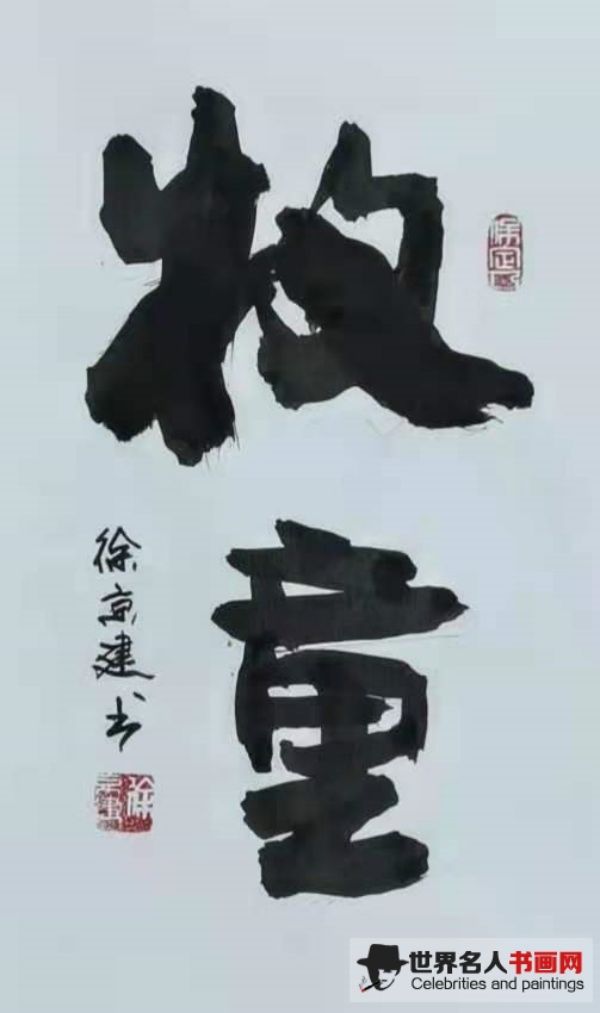 牧童
徐京建书
世界名人书画网
Celebrities and paintings